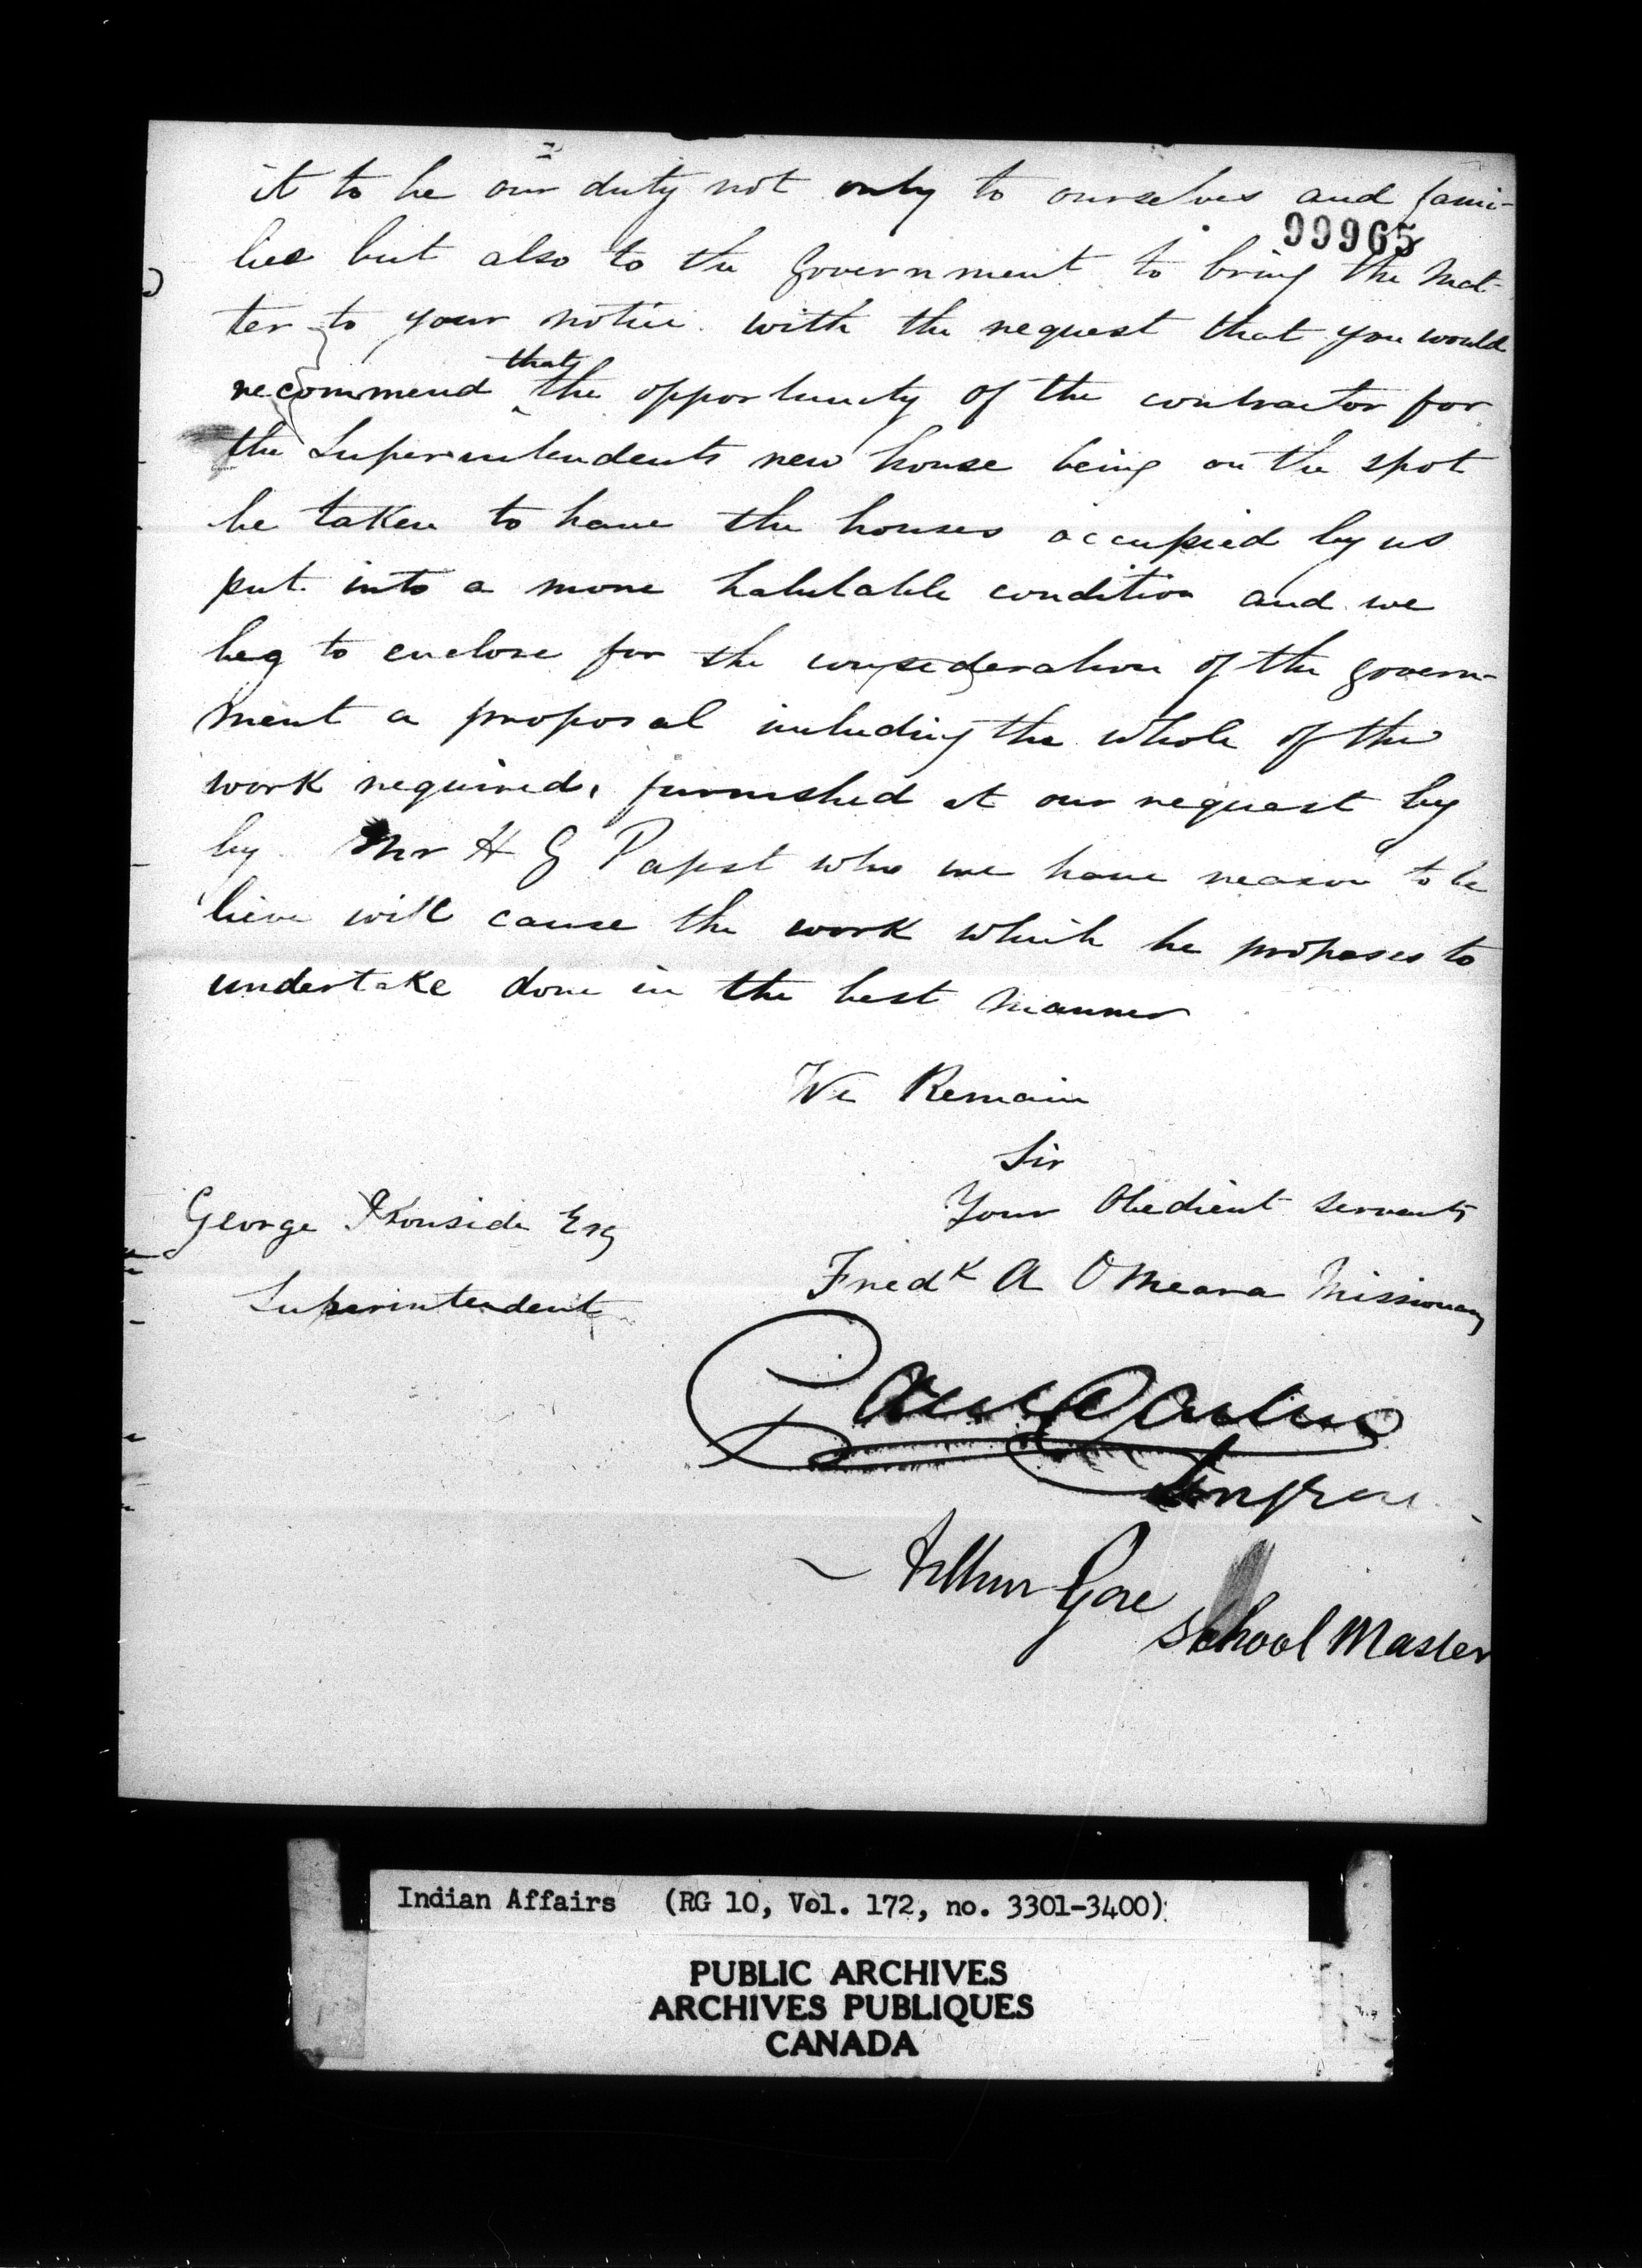 it to be our duty not only to ourselves and fami-
99965
lies but also to the Government to bring the mat-
ter to your notice with the request that you would
that
recommend the opportunity of the contractor for
the Superintendents new house being on the spot
be taken to have the houses occupied by us
put into a more habitable condition and we
beg to enclose for the consideration of the govern-
ment a proposal including the whole of the
work required, furnished at our request by
by Mr H G Papst who we have reason to be
lieve will cause the work which he proposes to
undertake done in the best manner
We Remain
Sir
Your Obedient servants
George Ironside Esq
Fredk A O Meara Missionary
Superintendent
Surgeon
Arthur Gore
School Master
Indian Affairs (RG 10, Vol. 172, no. 3301-3400)
PUBLIC ARCHIVES
ARCHIVES PUBLIQUES
CANADA